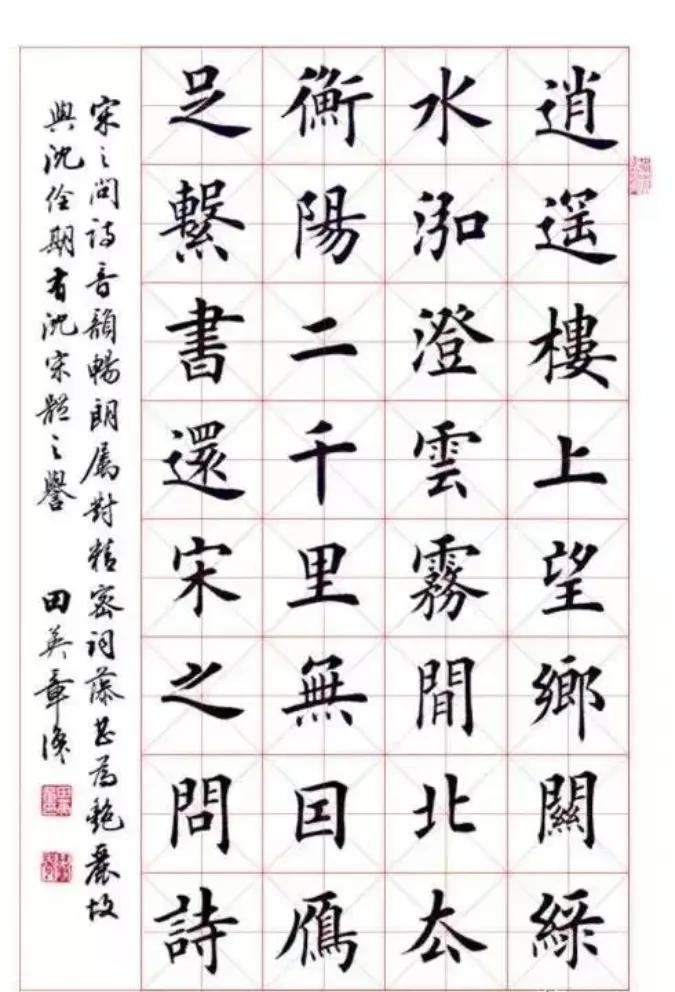 逍遥樓上望鄉關綠
水泓澄雲霧閒北厺
衡陽二千里無囙鴈
足繫書還宋之問詩
宋之問詩音韻暢朗屬對精密詞藻甚為艷麗故
與沈佺期有沈宋體之譽 田英章識